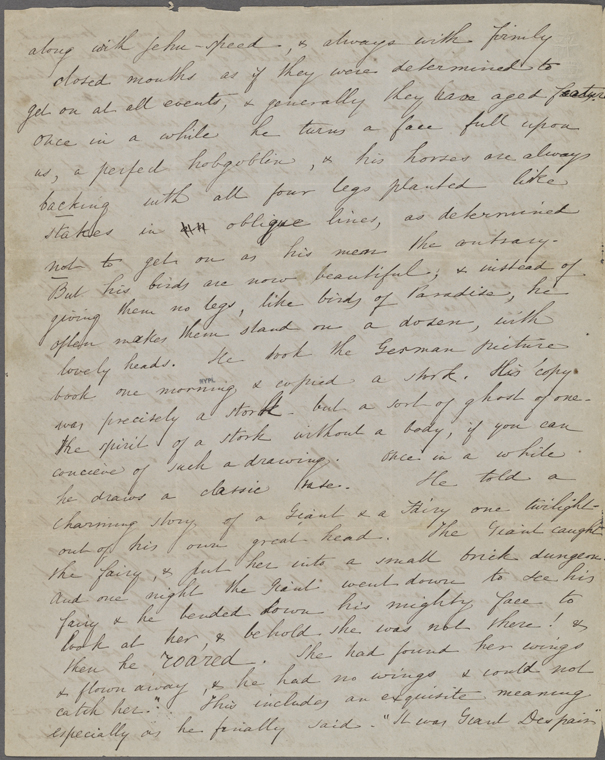 along with Jehu-speed, & always with firmly
closed mouths as if they were determined to
get on at all events, & generally they have aged featur
Once in a while he turns a face full upon
us, a perfect hobgoblin, & his horses are always
backing with all four legs planted like
stakes in oblique lines, as determined
not to get on as his men the contrary.
But his birds are now beautiful; & instead of
giving them no legs, like birds of Paradise, he
often makes them stand on a dozen, with
lovely heads. He took the German picture
book one morning & copied a stork. His copy
NYPL
was precisely a stork - but a sort of ghost of one -
the spirit of a stork without a body, if you can
concieve of such a drawing. Once in a while
he draws a classic vase. He told a
charming story of a Giant & a Fairy one twilight
out of his own great head. "The Giant caught
the fairy, & put her into a small brick dungeon.
And one night the Giant went down to see his
fairy & he bended down his mighty face to
look at her, & behold she was not there! &
then he roared. She had found her wings
& flown away, & he had no wings, & could not
catch her." This includes an exquisite meaning
especially as he finally said - "It was Giant Despair"